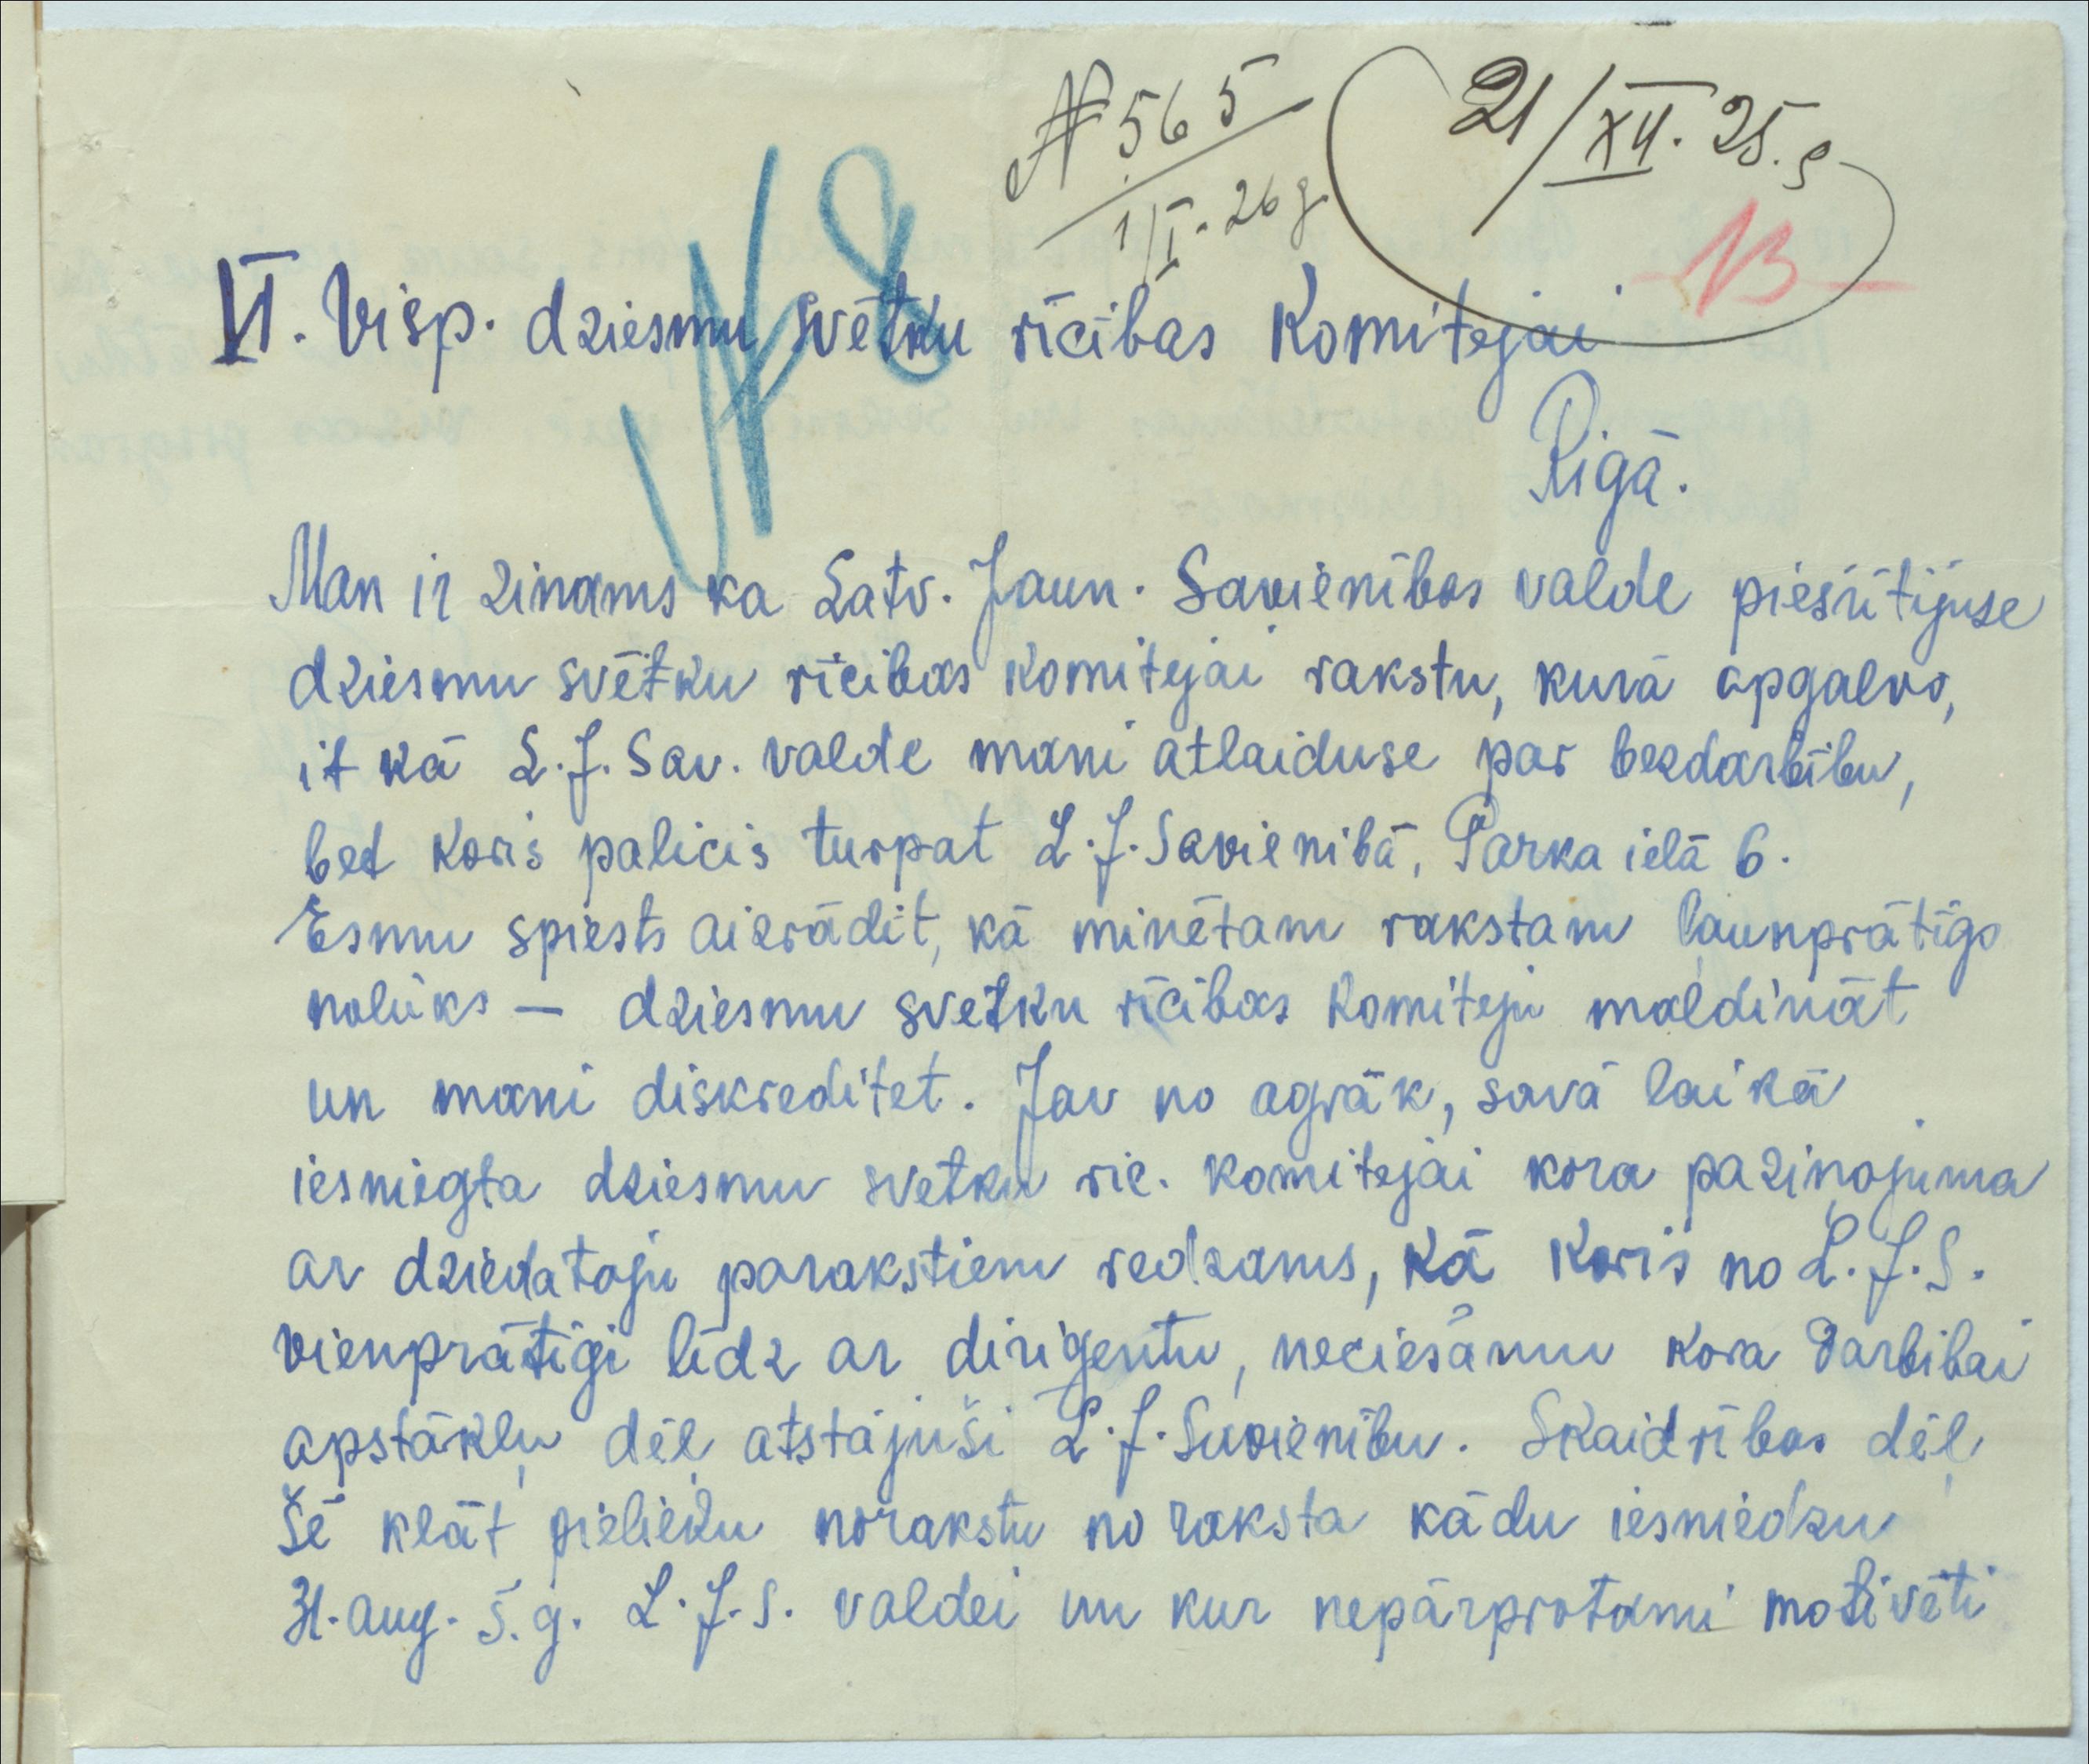 № 565
1/I. 26 g.
21/XII. 25. g
13
№ 8
VI. Visp. dziesmu svētku rīcības Komitejai
Rīgā.
Man ir zinams ka Latv. Jaun. Savienības valde piesūtijuse
dziesmu svētku rīcibas Komitejai rakstu, kurā apgalvo,
it kā L. J. Sav. valde mani atlaiduse par bezdarbību,
bet Koris palicis turpat L. J. Savienibā, Parka ielā 6.
Esmu spiests aizrādit, kā minētam rakstam ļaunprātīgs
nolūks — dziesmu svetku rīcibas Komiteju maldināt
un mani diskreditet. Jau no agrāk, savā laikā
iesniegta dziesmu svetku ric. Komitejai kora paziņojuma
ar dziedataju parakstiem redzams, kā Koris no L. J. S.
vienprātīgi līdz ar diriģentu, neciešamu Kora darbibai
apstākļu dēļ atstājuši L. J. Savienību. Skaidrības dēļ
šē klāt pielieku norakstu no raksta kādu iesniedzu
31. aug. š. g. L. J. S. valdei un kur nepārprotami motivēti